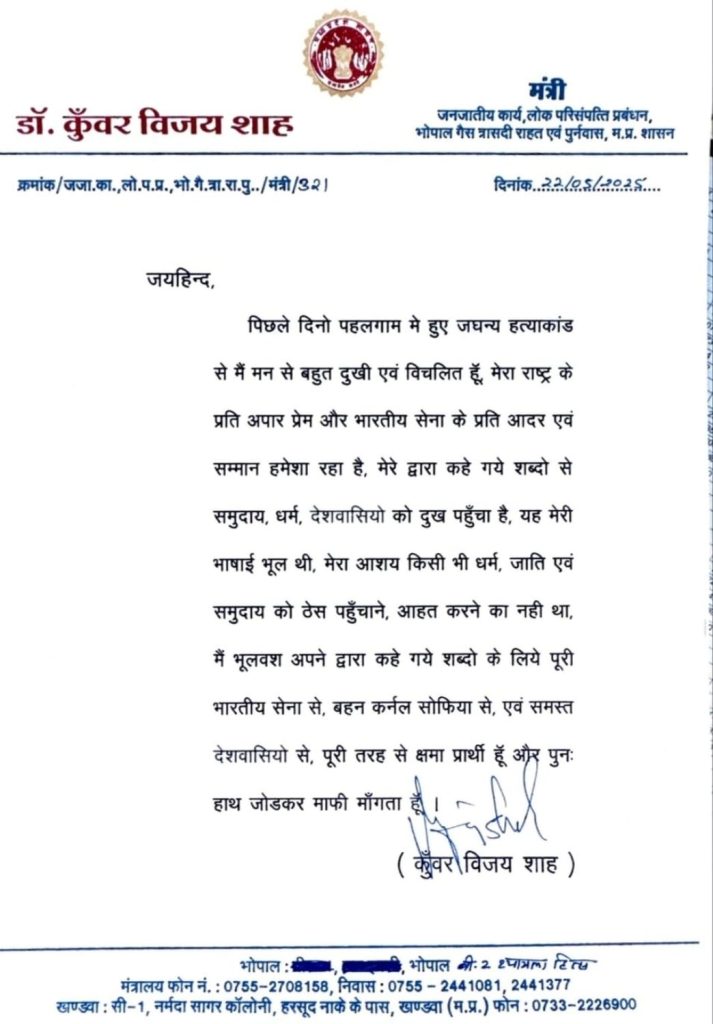 डॉ. कुँवर विजय शाह
मंत्री
जनजातीय कार्य,लोक परिसंपत्ति प्रबंधन,
भोपाल गैस त्रासदी राहत एवं पुर्नवास, म.प्र. शासन
क्रमांक/जजा.का.,लो.प.प्र.,भो.गै.त्रा.रा.पु../मंत्री/321
दिनांक..22/05/2025....
जयहिन्द,
पिछले दिनो पहलगाम मे हुए जघन्य हत्याकांड
से मैं मन से बहुत दुखी एवं विचलित हूँ, मेरा राष्ट्र के
प्रति अपार प्रेम और भारतीय सेना के प्रति आदर एवं
सम्मान हमेशा रहा है, मेरे द्वारा कहे गये शब्दो से
समुदाय, धर्म, देशवासियो को दुख पहुँचा है, यह मेरी
भाषाई भूल थी, मेरा आशय किसी भी धर्म, जाति एवं
समुदाय को ठेस पहुँचाने, आहत करने का नही था,
मैं भूलवश अपने द्वारा कहे गये शब्दो के लिये पूरी
भारतीय सेना से, बहन कर्नल सोफिया से, एवं समस्त
देशवासियो से, पूरी तरह से क्षमा प्रार्थी हूँ और पुनः
हाथ जोडकर माफी माँगता हूँ ।
( कुँवर विजय शाह )
भोपाल : , भोपाल बी-2
मंत्रालय फोन नं. : 0755-2708158, निवास : 0755 - 2441081, 2441377
खण्डवा : सी-1, नर्मदा सागर कॉलोनी, हरसूद नाके के पास, खण्डवा (म.प्र.) फोन : 0733-2226900